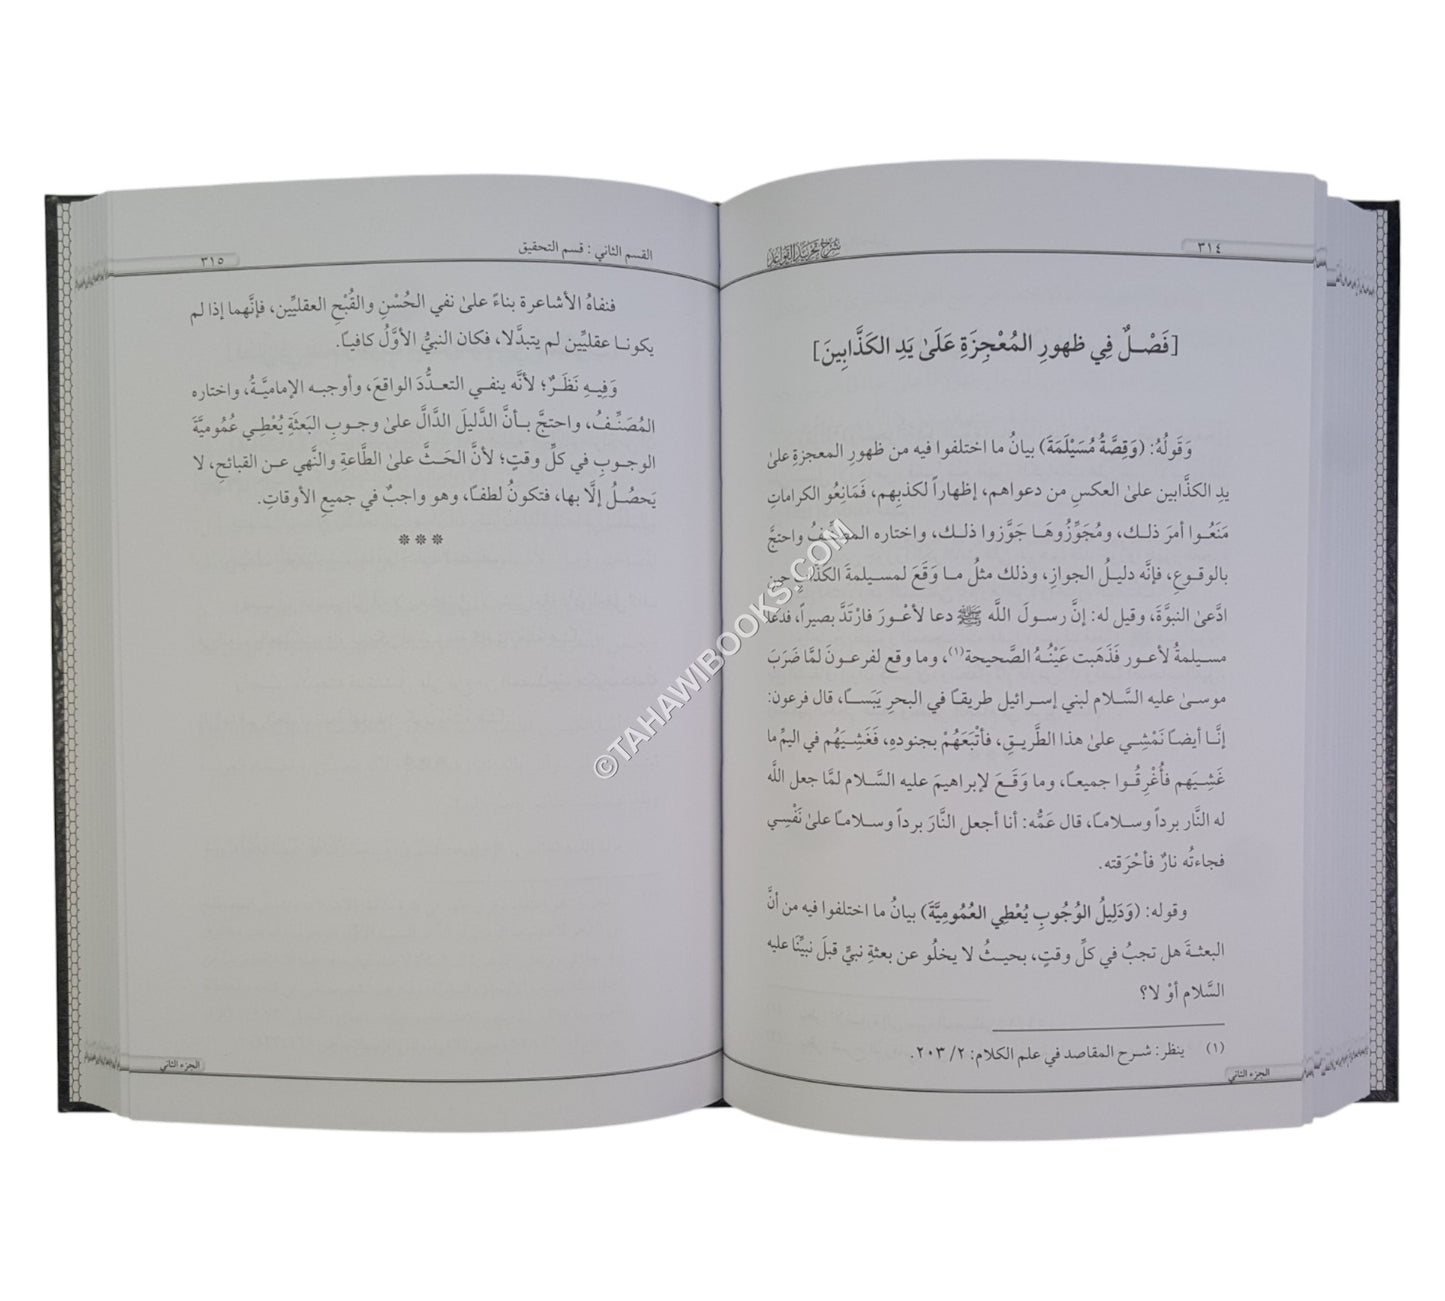 ٣١٤
شرح تجريد القواعد
[فَصْلٌ فِي ظهورِ المُعْجِزَةِ عَلَىٰ يَدِ الكَذَّابِينَ]
وَقَولُهُ: (وَقِصَّةُ مُسَيْلَمَةَ) بيانُ ما اختلفوا فيه من ظهورِ المعجزةِ علىٰ
يدِ الكذَّابين علىٰ العكسِ من دعواهم، إظهاراً لكذبِهم، فَمَانِعُو الكراماتِ
مَنَعُوا أمرَ ذلك، ومُجَوِّزُوهَا جَوَّزوا ذلك، واختاره المصنِّفُ واحتجَّ
بالوقوعِ، فإنَّه دليلُ الجوازِ، وذلك مثلُ ما وَقَعَ لمسيلمةَ الكذَّابِ حين
ادَّعىٰ النبوَّةَ، وقيل له: إنَّ رسولَ اللَّه ﷺ دعا لأعْورَ فارْتَدَّ بصيراً، فدعا
مسيلمةُ لأعور فَذَهَبت عَيْنُهُ الصَّحيحة(١)، وما وقع لفرعونَ لمَّا ضَرَبَ
موسىٰ عليه السَّلام لبني إسرائيل طريقاً في البحرِ يَبَساً، قال فرعون:
إنَّا أيضاً نَمْشِي علىٰ هذا الطَّريقِ، فأتْبَعَهُمْ بجنودِه، فَغَشِيَهُم في اليمِّ ما
غَشِيَهم فأُغْرِقُوا جميعاً، وما وَقَعَ لإبراهيمَ عليه السَّلام لمَّا جعل اللَّه
له النَّار برداً وسلاماً، قال عَمُّه: أنا أجعل النَّارَ برداً وسلاماً علىٰ نَفْسِي
فجاءتُه نارٌ فأحْرَقته.
وقوله: (وَدَلِيلُ الوُجُوبِ يُعْطِي العُمُومِيَّةَ) بيانُ ما اختلفوا فيه من أنَّ
البعثةَ هل تجبُ في كلِّ وقتٍ، بحيثُ لا يخلُو عن بعثةِ نبيٍّ قبلَ نبيِّنَا عليه
السَّلام أوْ لا؟
(١) ينظر: شرح المقاصد في علم الكلام: ٢/ ٢٠٣.
الجزء الثاني
القسم الثاني : قسم التحقيق
٣١٥
فنفاهُ الأشاعرة بناءً علىٰ نفي الحُسْنِ والقُبْحِ العقليِّين، فإنَّهما إذا لم
يكونا عقليِّين لم يتبدَّلا، فكان النبيُّ الأوَّلُ كافياً.
وَفِيهِ نَظَرٌ؛ لأنَّه ينفي التعدُّدَ الواقعَ، وأوجبه الإماميَّةُ، واختاره
المُصَنِّفُ، واحتجَّ بأنَّ الدَّليلَ الدَّالَّ علىٰ وجوبِ البَعثةِ يُعْطِي عُمُوميَّةَ
الوجوبِ في كلِّ وقتٍ؛ لأنَّ الحَثَّ علىٰ الطَّاعةِ والنَّهي عن القبائحِ، لا
يَحصُلُ إلَّا بها، فتكونُ لطفاً، وهو واجبٌ في جميعِ الأوقاتِ.
* * *
الجزء الثاني
©TAHAWIBOOKS.COM